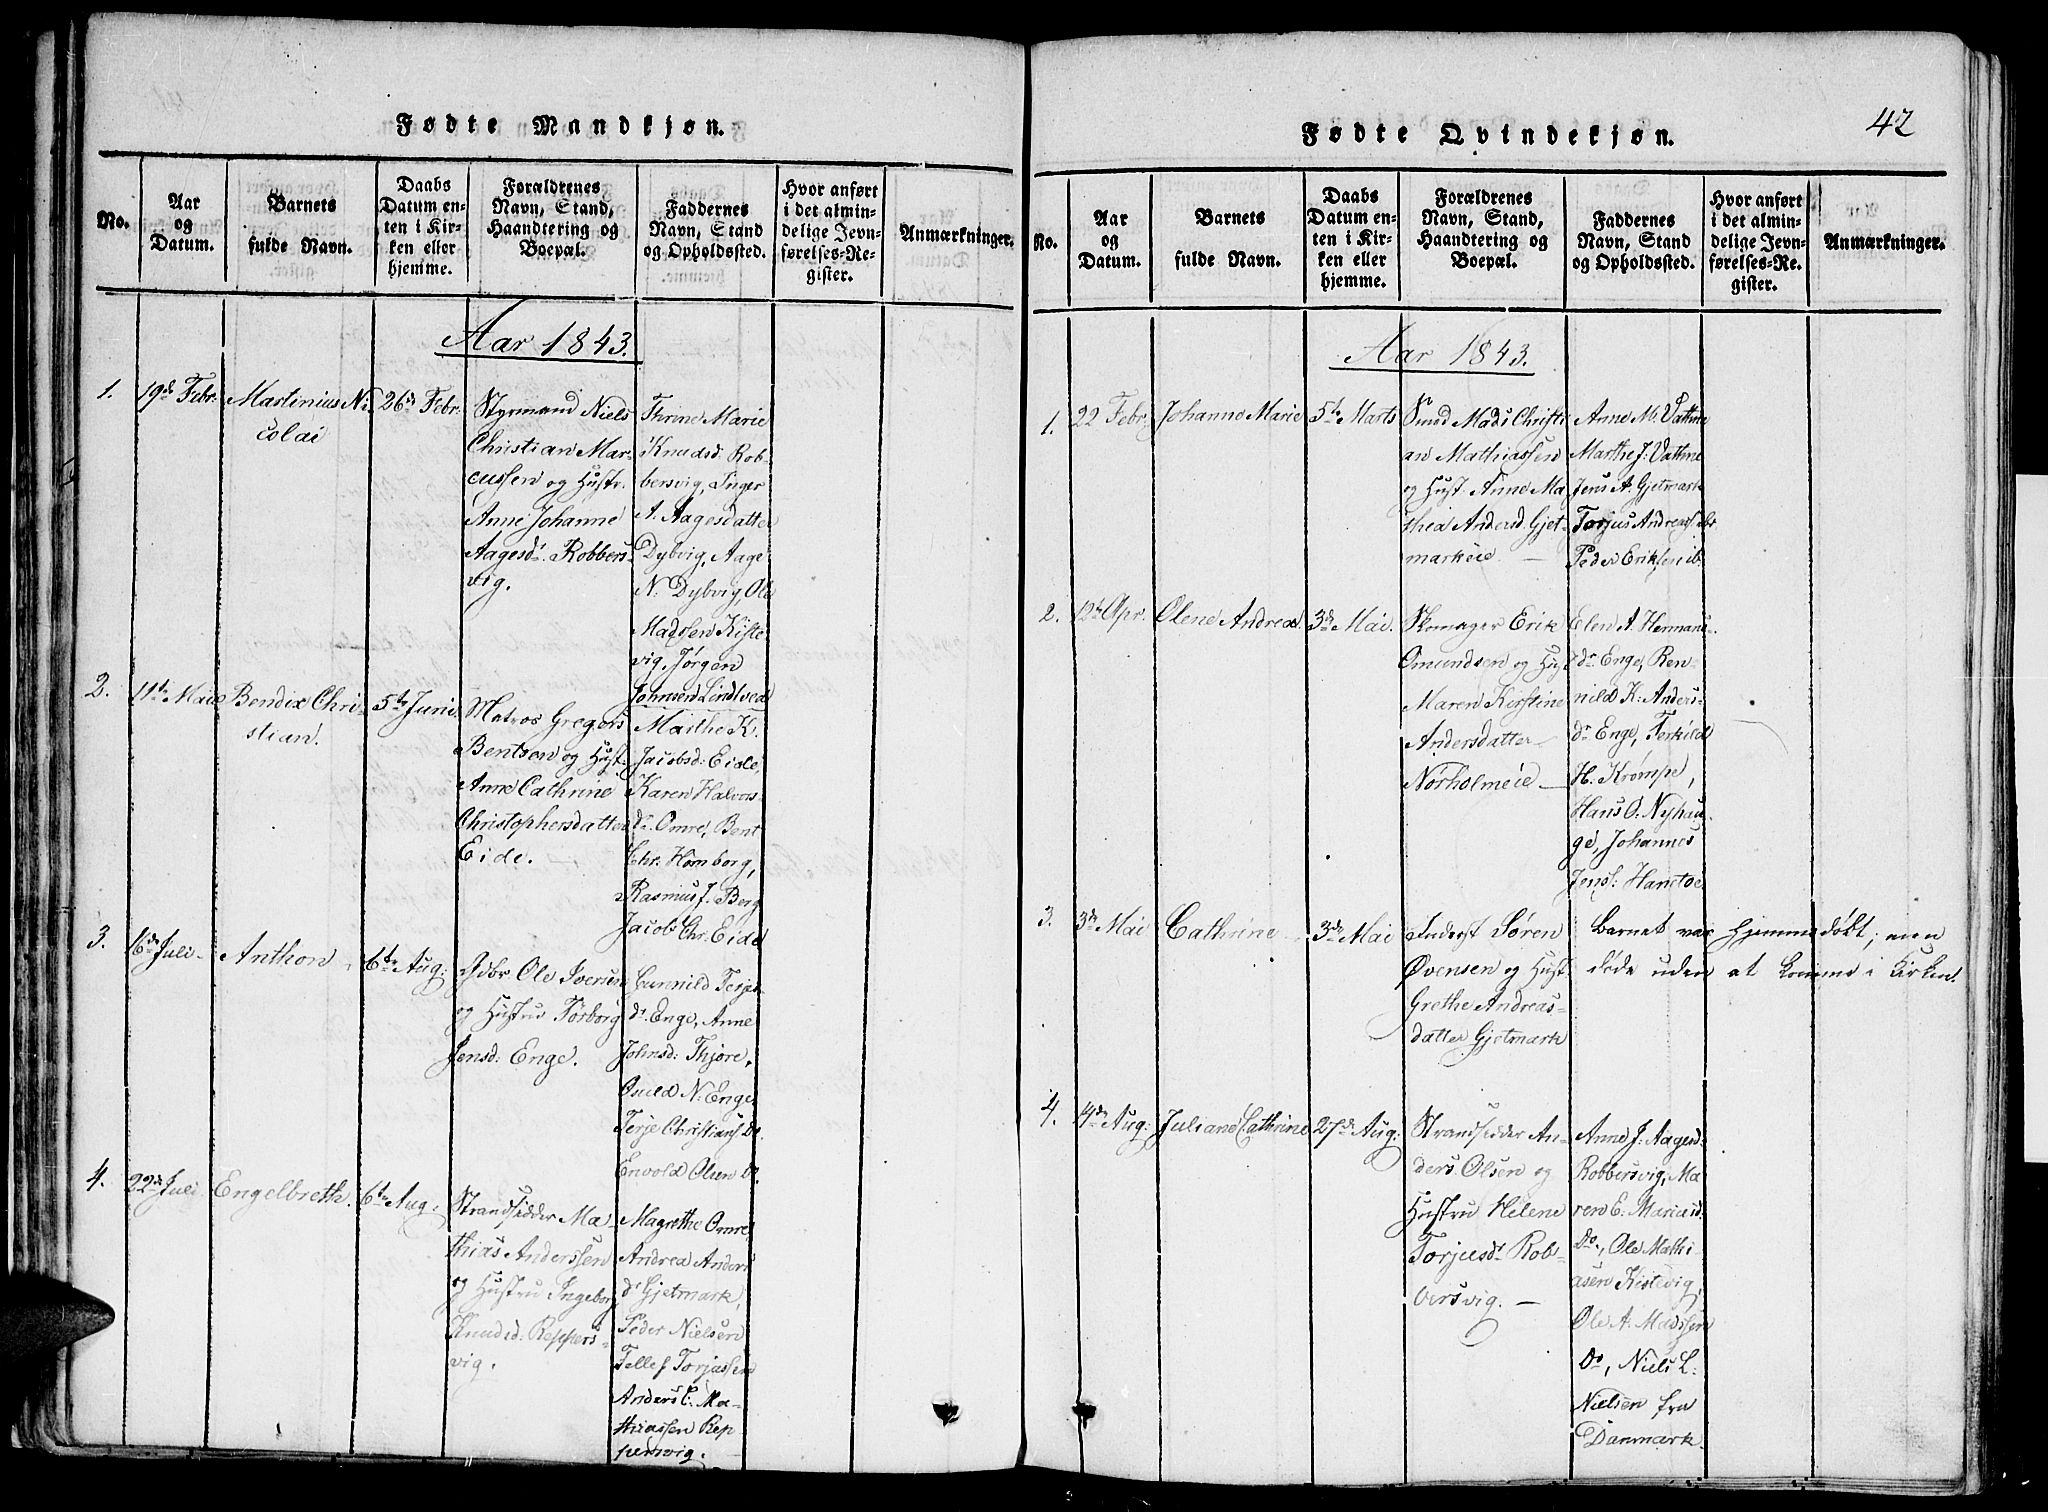 Fødte Mandkjøn.
No.
Aar
og
Datum.
Barnets
fulde Navn.
Daabs
Datum en-
ten i Kir-
ken eller
hjemme.
Forældrenes
Navn, Stand,
Haandtering og
Boepæl.
Faddernes
Navn, Stand
og Opholdssted.
Hvor anført
i det almin-
delige Jevn-
førelses-Re-
gister.
Anmærkninger.
Aar 1843.
1.
19de Febr.
Martinius Ni-
colai
26de Febr.
Styrmand Niels
Christian Mar-
cussen og Hustr.
Anne Johanne
Aagesd: Robbers-
vig.
Thrine Marie
Knudsd. Rob-
bersvig, Inger
A. Aagesdatter
Dybvig, Aage
N. Dybvig, Ole
Madssen Kiste-
vig, Jørgen
Johnsen Lindtved
2.
11te Mai
Bendix Chri-
stian.
5te Juni
Matros Gregers
Bentsen og Hust:
Anne Cathrine
Christophersdatter
Eide.
Marthe K.
Jacobsd: Eide,
Karen Halvors-
dr. Omre, Bent
Chr: Homborg,
Rasmus J. Berg
Jacob Chr. Eide
3.
16de Juli
Anthon
6te Aug:
Ole Iversen
og Hustru Torborg
Jensd: Enge.
Gunnild Terjes-
dr. Enge, Anne
Johnsd: Thjøre,
N. Enge
Terje Christians do.
Envold Olsen do.
4.
22de Juli
Engelbreth.
6te Aug.
Strandsidder Ma-
thias Anderssen
og Hustru Ingeborg
Knudsd: Reppers-
vig.
Magrethe Omre,
Andrea Anders
dr Gjetmark,
Peder Nielsen
Tellef Torjassen
Anders C: Ma-
thiassen Rep-
persvig.
42
Fødte Qvindekjøn.
No.
Aar
og
Datum.
Barnets
fulde Navn.
Daabs
Datum en-
ten i Kir-
ken eller
hjemme.
Forældrenes
Navn, Stand,
Haandtering og
Boepæl.
Faddernes
Navn, Stand
og Opholdssted.
Hvor anført
i det almin-
delige Jevn-
førelses-Re-
gister.
Anmærkninger.
Aar 1843.
1.
22 Febr.
Johanne Marie
5te Marts
Smed Mads Christi
an Mathiassen
og Hust. Anne Ma
thea Andersd. Gjet-
markeie. —
Anne M. Vattne
Marthe J: Vattne
Jens A. Gjetmark
Torjus Andreas
Peder Eriksen ib.
2.
12te Apr.
Olene Andrea.
3de Mai.
Skomager Erik
Omundsen og Hust
Maren Kirstine
Andersdatter
Nørholmeie —
Elen A. Hermans-
dr. Enge, Ren-
nild K: Anders-
dr Enge, Terkild
H: Krømpe,
Hans O. Nyhau-
ge, Johannes
Jens: Hanetoe
3.
3de Mai
Cathrine
3de Mai
Inderst Søren
Øvensen og Hust.
Grethe Andreas-
datter Gjetmark
Barnet var hjemmedøbt; men
døde uden at komme i Kirken.
4.
4de Aug:
Juliane Cathrine
27de Aug:
Strandsidder An-
ders Olsen og
Hustru Helene
Torjusdr Rob-
bersvig. —
Anne J. Aagesd:
Robbersvig, Ma-
ren E. Mariusd:
do., Ole Mathi-
asen Kistevig,
Ole A. Madssen
do, Niels L:
Nielsen fra
Danmark.